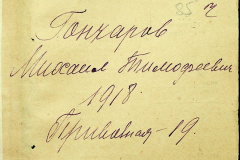 85 ч
Гончаров
Михаил Тимофеевич
1918.
Приволная - 19.